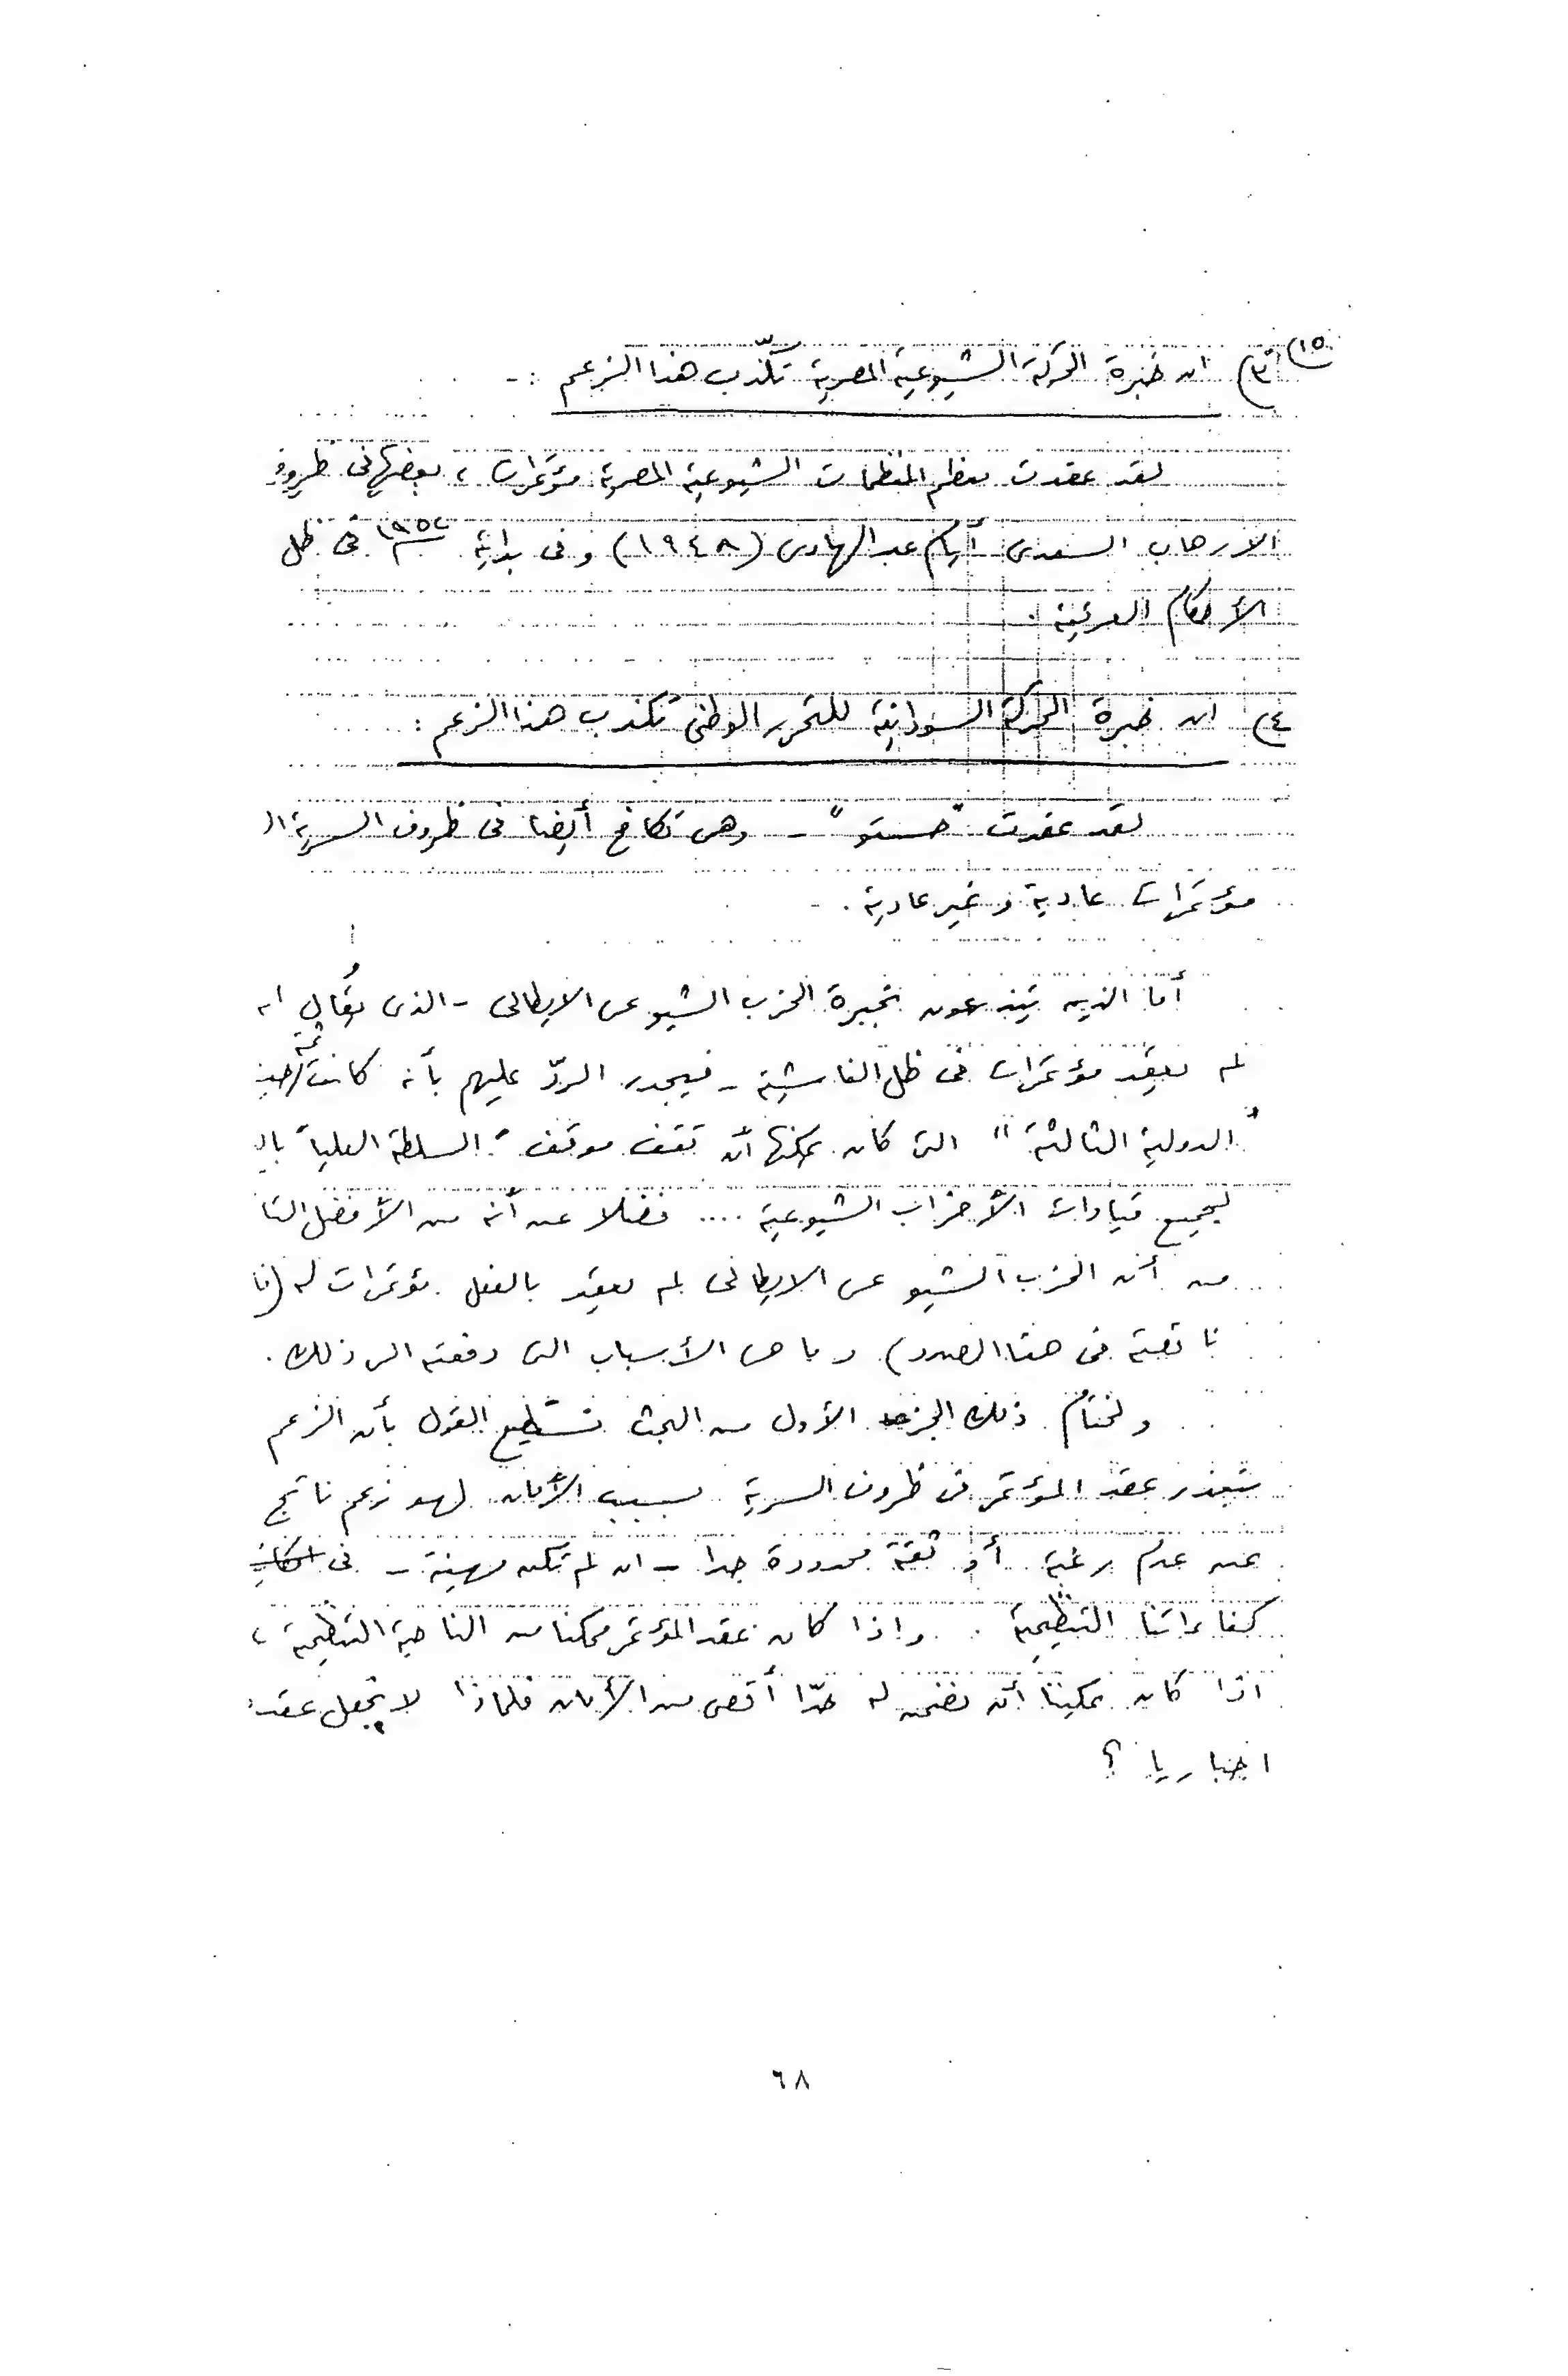 ١٥)
٣) ان خبرة الحركة الشيوعية المصرية تكذّب هذا الزعم :-
لقد عقدت معظم المنظمات الشيوعية المصرية مؤتمرات ، بعضها فى ظروف
الارهاب السعدى أيام عبد الهادى (١٩٤٨) وفى بداية ١٩٥٢ فى ظل
الأحكام العرفية .
٤) ان خبرة الحركة السودانية للتحرر الوطنى تكذب هذا الزعم :
لقد عقدت "حستو" - وهى تكافح أيضا فى ظروف السرية ال
مؤتمرات عادية وغير عادية . -
أما الذين يتذرعون بخبرة الحزب الشيوعى الايطالى - الذى يُقال ان
لم يعقد مؤتمرات فى ظل الفاشية - فيجدر الردّ عليهم بأنه كانت ثمة
"الدولية الثالثة" التى كان يمكنها أن تقف موقف "السلطة العليا"
لجميع قيادات الأحزاب الشيوعية .... فضلا عن أنه من الأفضل التا
من أن الحزب الشيوعى الايطالى لم يعقد بالفعل مؤتمرات له
ناقصة فى هذا الصدد) وما هى الأسباب التى دفعته الى ذلك .
ولختام ذلك الجزء الأول من البحث نستطيع القول بأن الزعم
بتعذر عقد المؤتمر فى ظروف السرية بسبب الأمان لهو زعم ناتج
عن عدم رغبة أو ثقة محدودة جدا - ان لم تكن مهينة - فى
كفاءاتنا التنظيمية . واذا كان عقد المؤتمر ممكنا من الناحية التنظيمية ،
اذا كان يمكننا أن نضمن له حدّا أقصى من الأمان فلماذا لا نجعل عقده
اجباريا ؟
٦٨